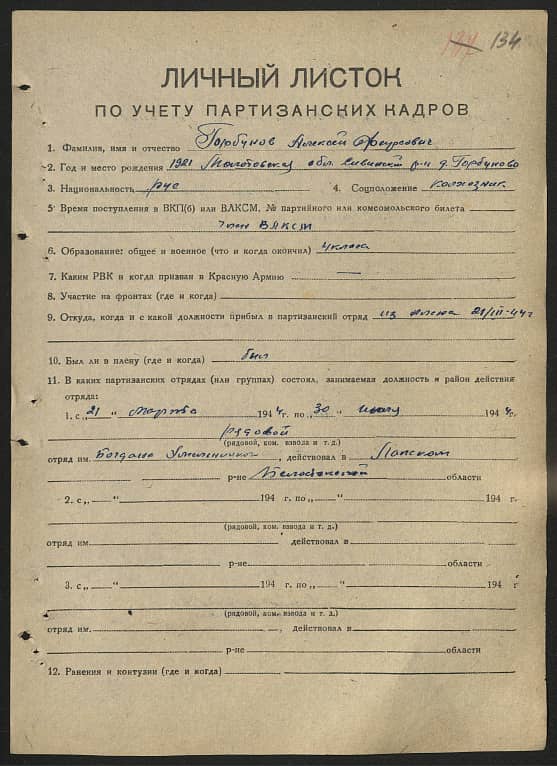 134
ЛИЧНЫЙ ЛИСТОК
ПО УЧЕТУ ПАРТИЗАНСКИХ КАДРОВ
1. Фамилия, имя и отчество Горбунов Алексей
2. Год и место рождения 1921 Молотовская обл. Сивинский р-н д. Горбуново
3. Национальность рус 4. Соцположение колхозник
5 Время поступления в ВКП(б) или ВЛКСМ, № партийного или комсомольского билета
член ВЛКСМ
6. Образование: общее и военное (что и когда окончил) 4 класса
7. Каким РВК и когда призван в Красную Армию —
8. Участие на фронтах (где и когда)
9. Откуда, когда и с какой должности прибыл в партизанский отряд из плена 21/III-44г
10. Был ли в плену (где и когда) был
11. В каких партизанских отрядах (или группах) состоял, занимаемая должность и район действия
отряда:
1. с „21 “ марта 1944 г. по „30 “ июня 1944 г.
рядовой
(рядовой, ком. взвода и т. д.)
отряд им. Богдана Хмельницкого, действовал в Лапском
р-не Белостокской области
2. с „ “ 194 г. по „ “ 194 г.
(рядовой, ком. взвода и т. д.)
отряд им. действовал в
р-не области
3. с „ “ 194 г. по „ “ 194 г
(рядовой, ком. взвода и т. д.)
отряд им. , действовал в
р-не области
12. Ранения и контузии (где и когда)